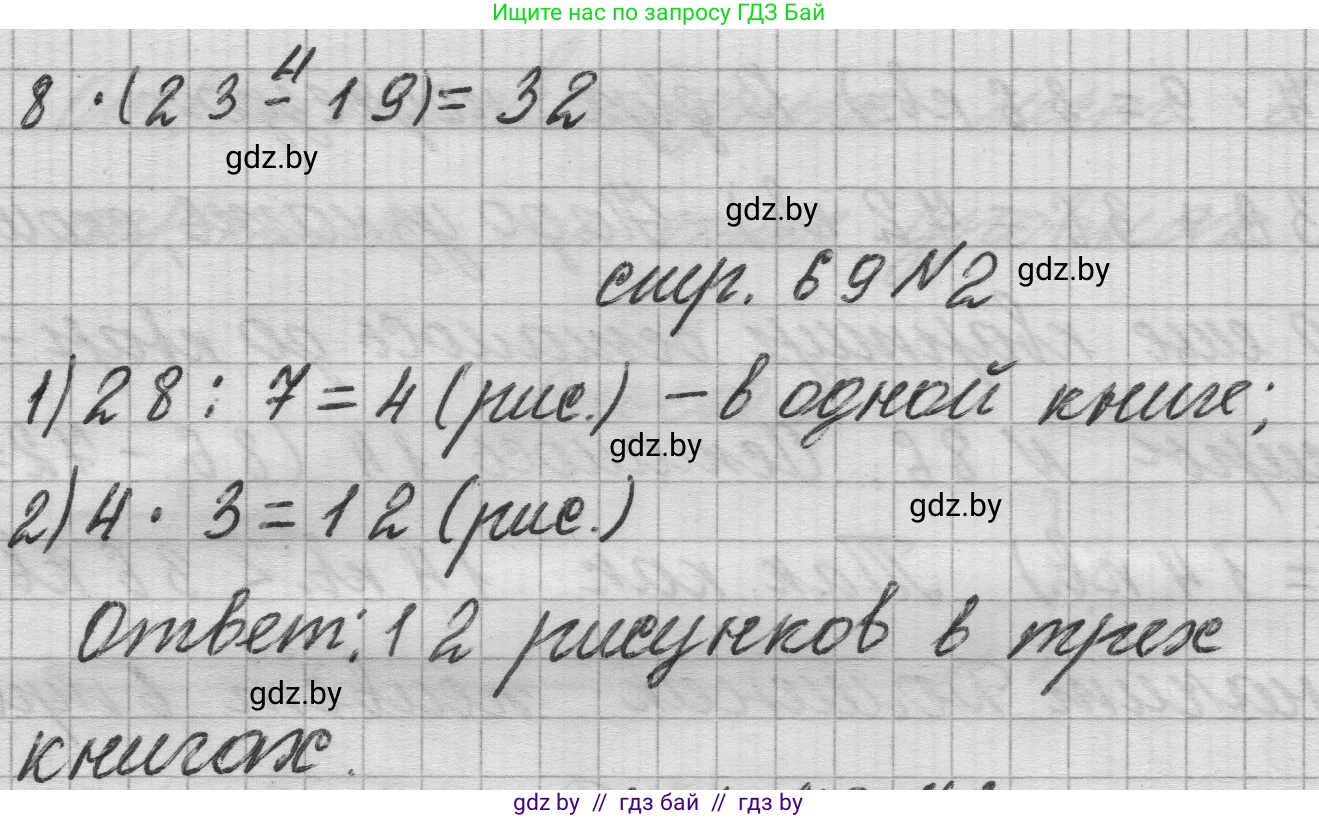 Ищите нас по запросу ГДЗ Бай
4
8 · (23 - 19) = 32
gdz.by
gdz.by
стр. 69 N2 gdz.by
1) 28 : 7 = 4 (рис.) – в одной книге;
gdz.by
2) 4 · 3 = 12 (рис.)
gdz.by
Ответ: 12 рисунков в трех
gdz.by
книгах.
gdz by // гдз бай // гдз by